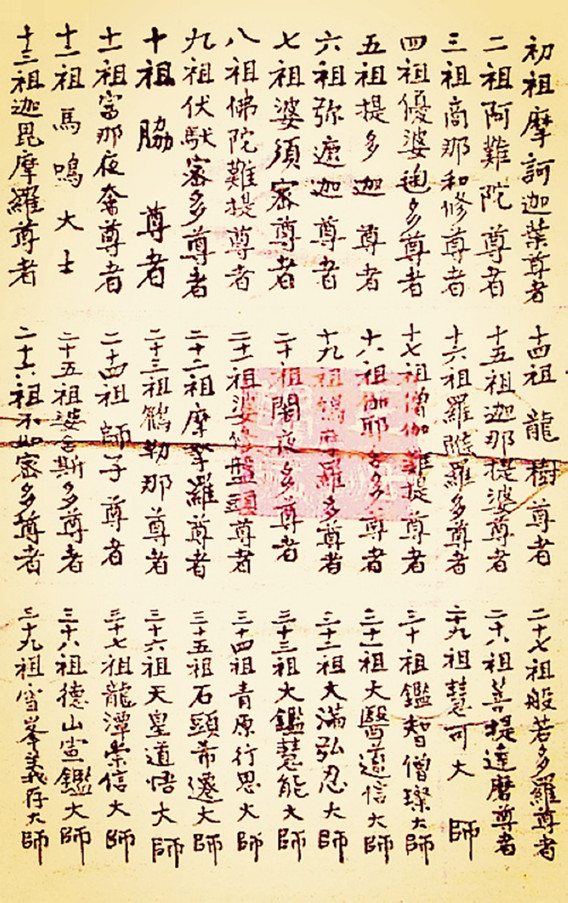 初祖摩訶迦葉尊者
二祖阿難陀尊者
三祖商那和修尊者
四祖優婆毱多尊者
五祖提多迦尊者
六祖弥遮迦尊者
七祖婆須密尊者
八祖佛陀難提尊者
九祖伏馱密多尊者
十祖脇尊者
十一祖富那夜奢尊者
十二祖馬鳴大士
十三祖迦毘摩羅尊者
十四祖龍樹尊者
十五祖迦那提婆尊者
十六祖羅睺羅多尊者
十七祖僧伽難提尊者
十八祖伽耶舍多尊者
十九祖鳩摩羅多尊者
二十祖闍夜多尊者
二十一祖婆修盤頭尊者
二十二祖摩拏羅尊者
二十三祖鶴勒那尊者
二十四祖師子尊者
二十五祖婆舍斯多尊者
二十六祖不如密多尊者
二十七祖般若多羅尊者
二十八祖菩提達磨尊者
二十九祖慧可大師
三十祖鑑智僧璨大師
三十一祖大醫道信大師
三十二祖大滿弘忍大師
三十三祖大鑑慧能大師
三十四祖青原行思大師
三十五祖石頭希遷大師
三十六祖天皇道悟大師
三十七祖龍潭崇信大師
三十八祖德山宣鑑大師
三十九祖雪峯義存大師